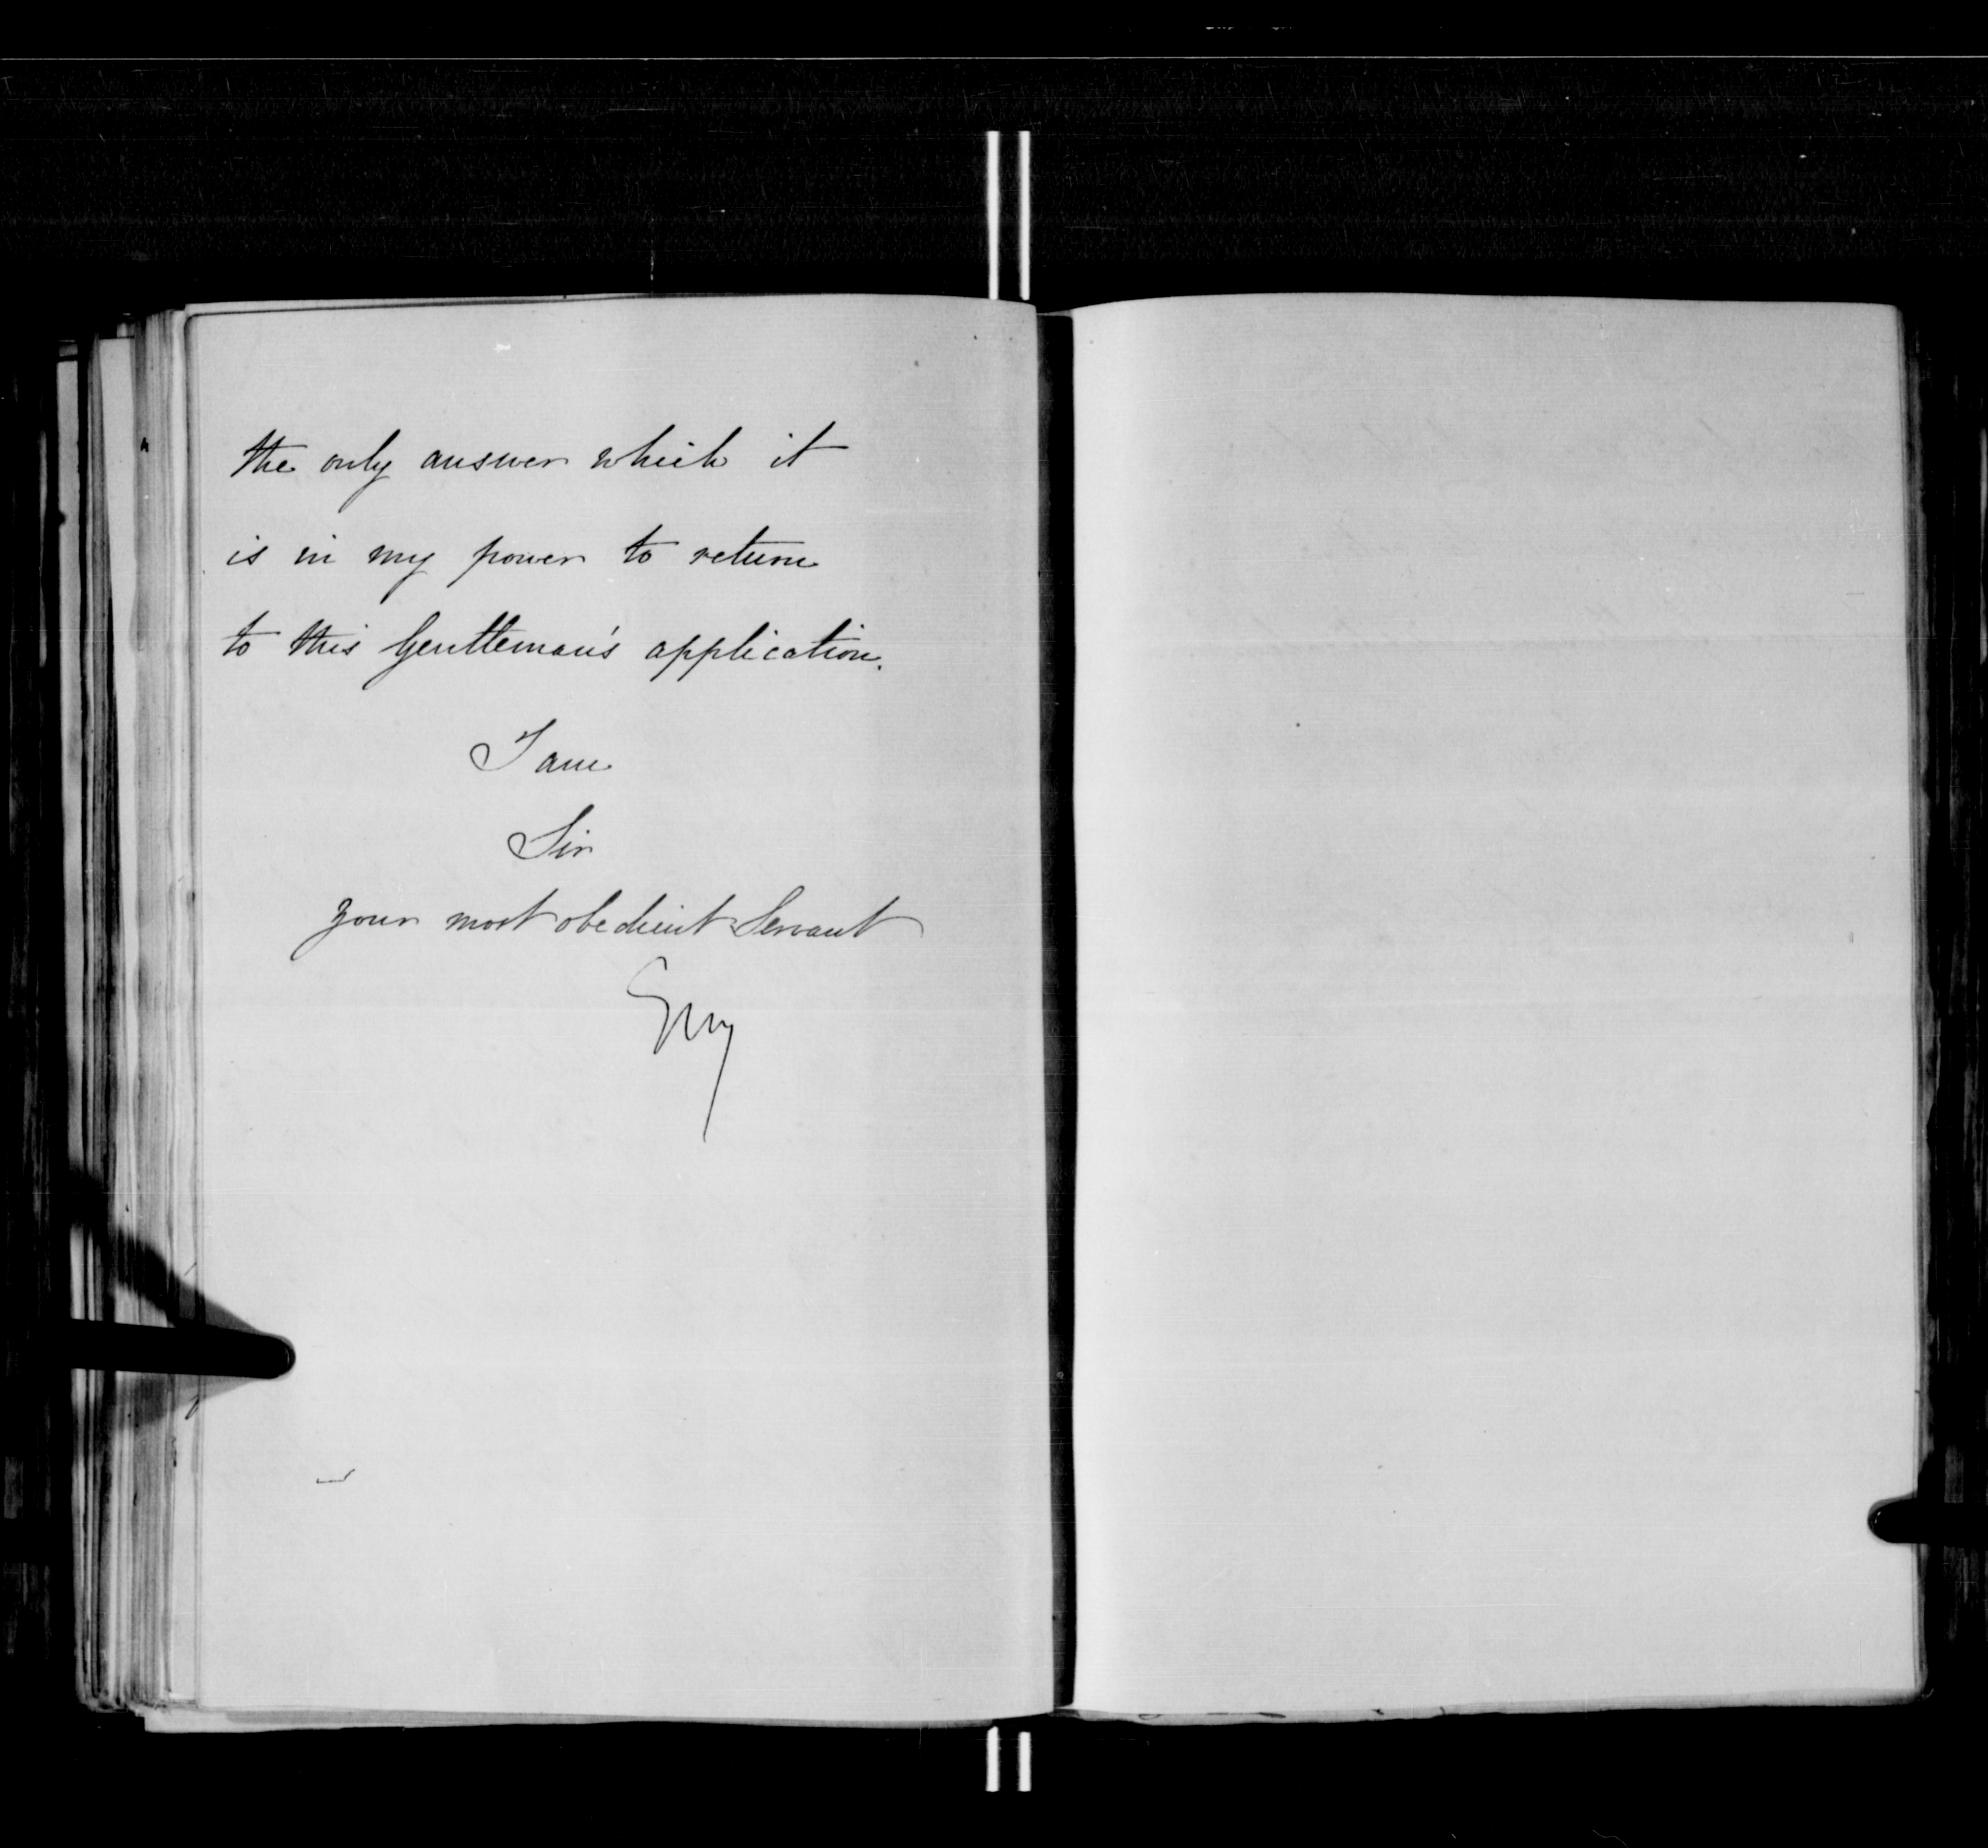 the only answer which it
is in my power to return
to this Gentleman's application.
I am
Sir
your most obedient Servant